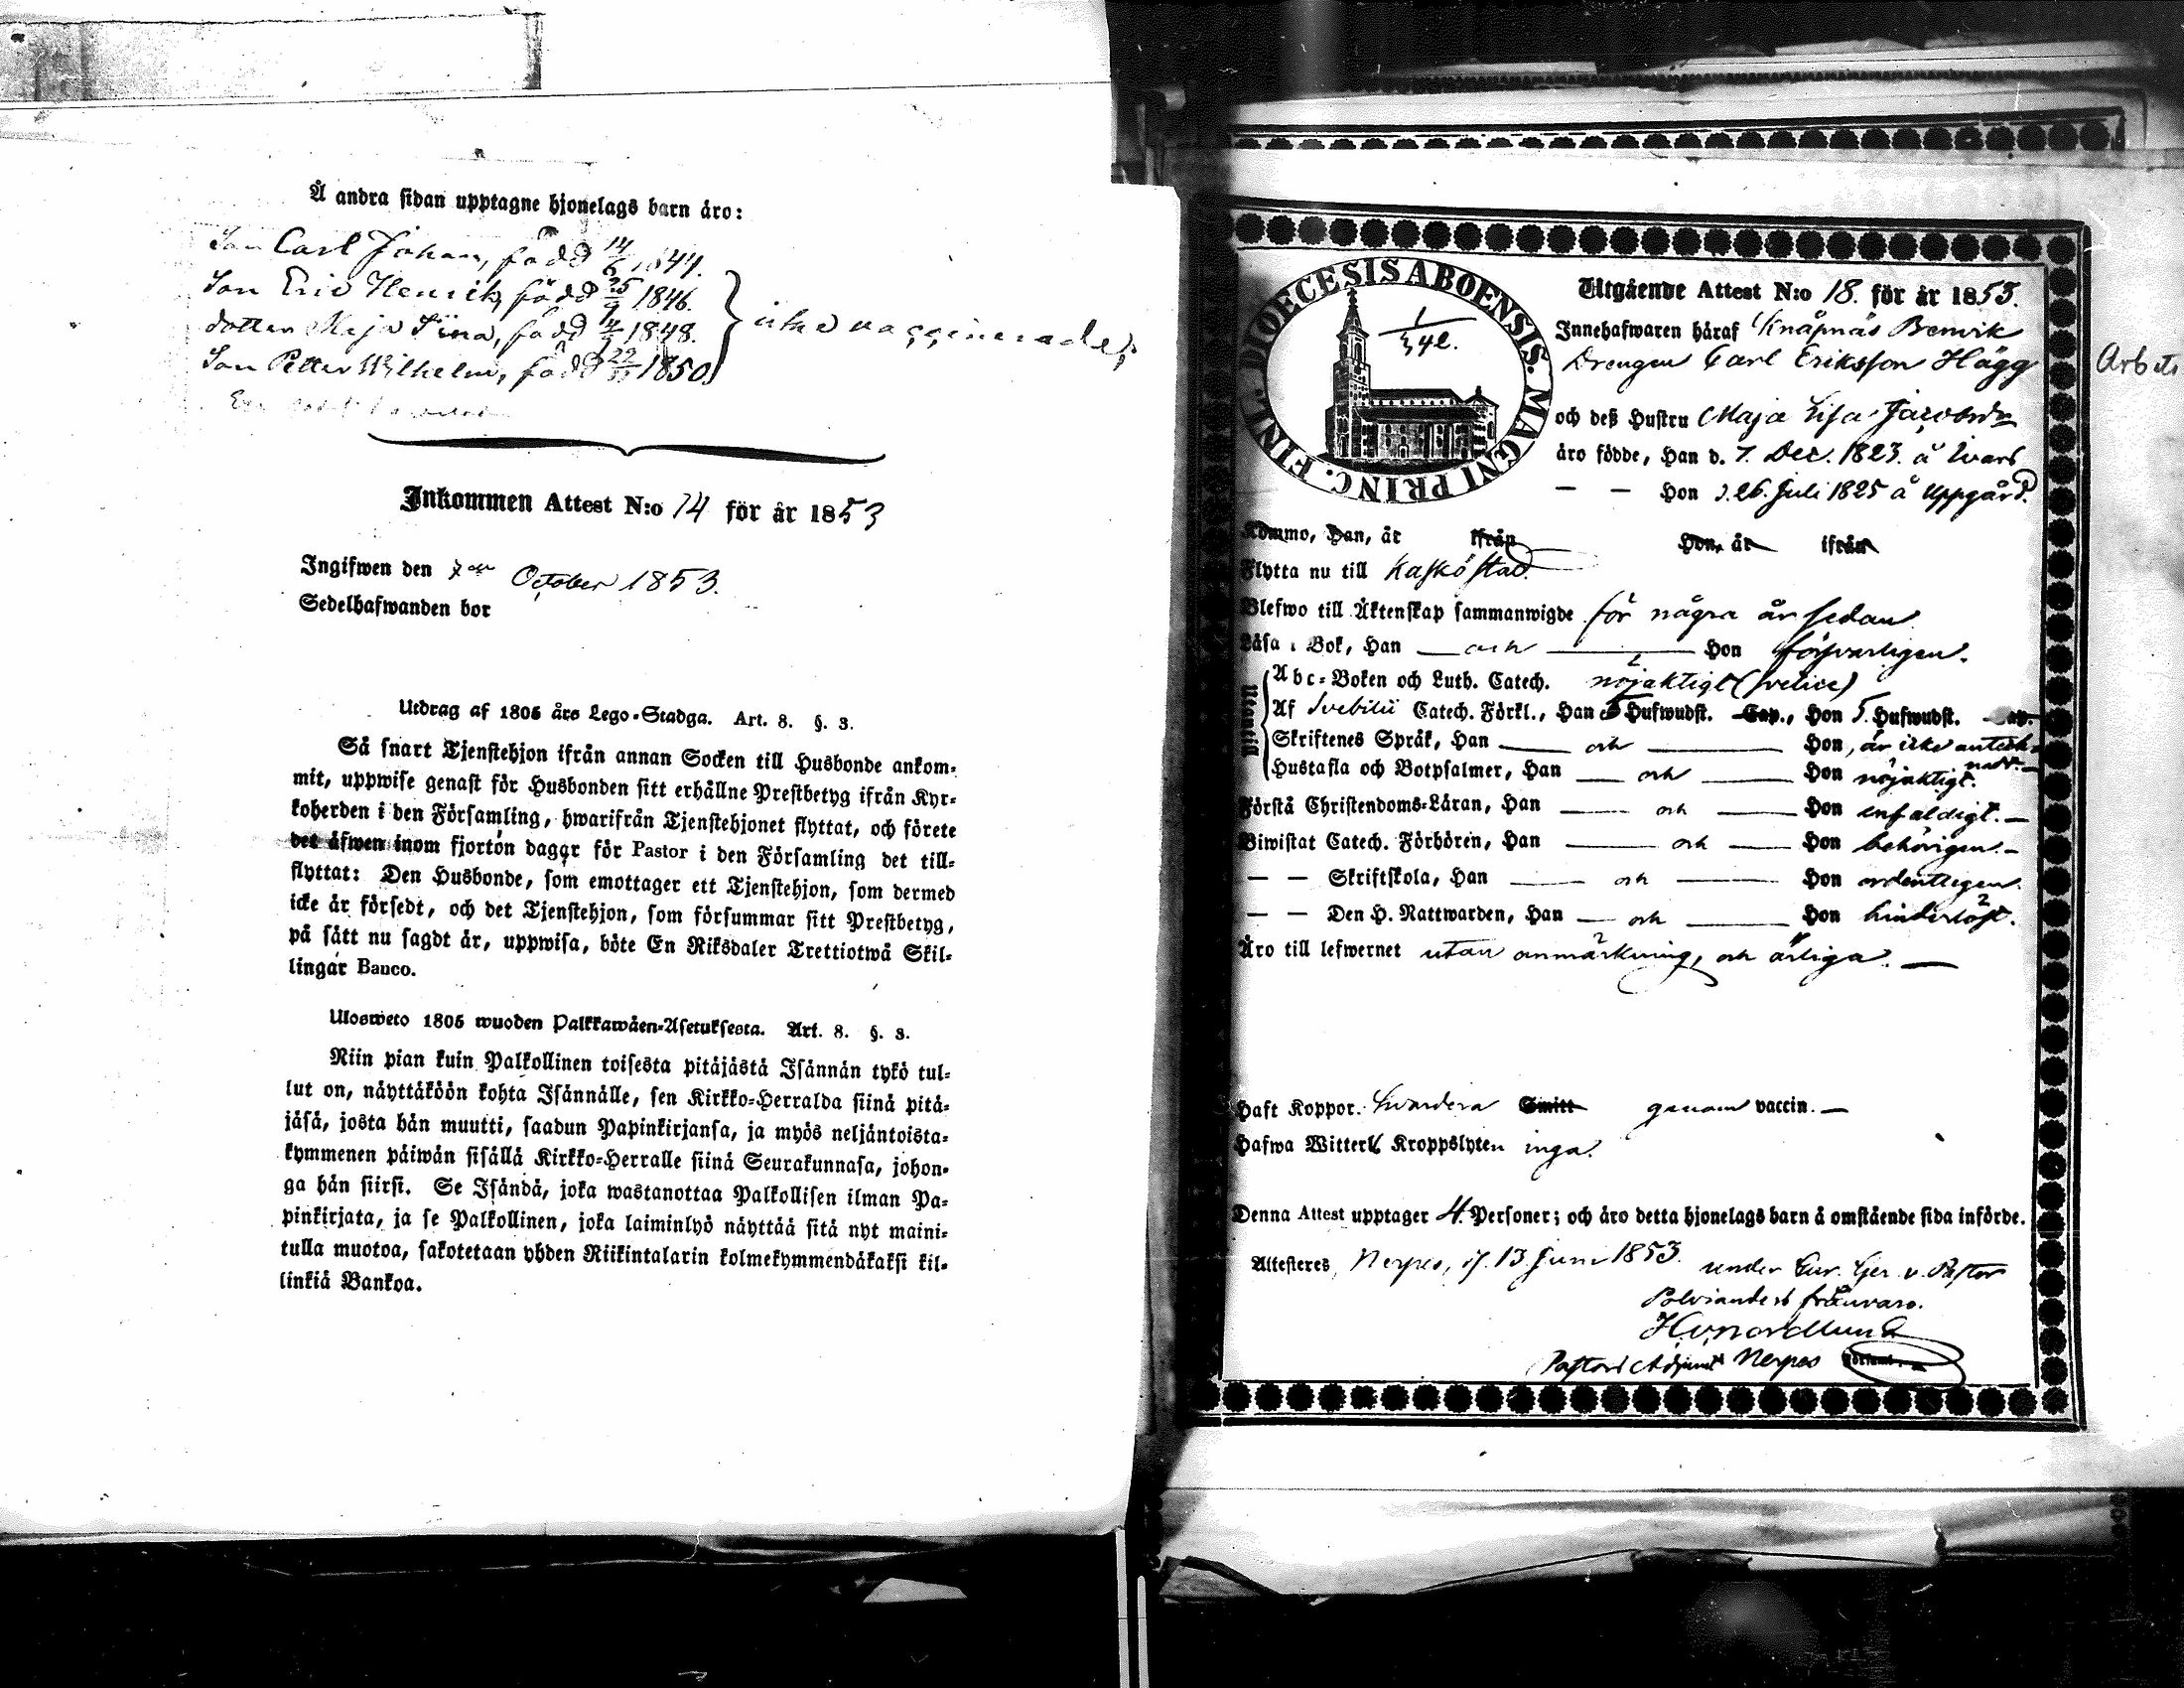 Å andra sidan upptagne hjonelags barn äro:
Son Carl Johan, född 14/6 1844.
Son Eric Henrik, född 25/9 1846.
dotter Maja Stina, född 1848.
Son Petter Wilhelm, född 1850
icke vaccinerade
Inkommen Attest N:o 14 för år 1853
Ingifwen den 7 October 1853.
Sedelhafwanden bor
Utdrag af 1805 års Lego-Stadga. Art. 8. §. 3.
Så snart Tjenstehjon ifrån annan Socken till Husbonde ankom-
mit, uppwise genast för Husbonden sitt erhållne Prestbetyg ifrån Kyr-
koherden i den Församling, hwarifrån Tjenstehjonet flyttat, och förete
det äfwen inom fjorton dagar för Pastor i den Församling det till-
flyttat: Den Husbonde, som emottager ett Tjenstehjon, som dermed
icke är försedt, och det Tjenstehjon, som försummar sitt Prestbetyg,
på sätt nu sagdt är, uppwisa, böte En Riksdaler Trettiotwå Skil-
lingar Banco.
Ulosweto 1805 wuoden Palkkawäen-Asetuksesta. Art. 8. §. 3.
Niin pian kuin Palkollinen toisesta pitäjästä Isännän tykö tul-
lut on, näyttäköön kohta Isännälle, sen Kirkko-Herralda siinä pitä-
jäsä, josta hän muutti, saadun Papinkirjansa, ja myös neljäntoista-
kymmenen päiwän sisällä Kirkko-Herralle siinä Seurakunnasa, johon-
ga hän siirsi. Se Isändä, joka wastanottaa Palkollisen ilman Pa-
pinkirjata, ja se Palkollinen, joka laiminlyö näyttää sitä nyt maini-
tulla muotoa, sakotetaan yhden Riikintalarin kolmekymmendäkaksi kil-
linkiä Bankoa.
DIOECESIS ABOENSIS. MAGNI PRINC. FINL.
Utgående Attest N:o 18. för år 1853.
Innehafwaren häraf Knåpnäs Benvik
Drengen Carl Eriksson Hägg
Arbets
och deß Hustru Maja Lisa Jacobsdr
äro födde, Han d. 7. Dec. 1823. å Ivars
— — Hon d. 26. Juli 1825 å Uppgård.
Kommo, Han, år ifrån Hon, år ifrån
Flytta nu till Kaskö stad.
Blefwo till Äktenskap sammanwigde för några år sedan
Läsa i Bok, Han — och — Hon försvarligen.
Utantill
Abc-Boken och Luth. Catech. nöjaktigt (svetice)
Af Svebilii Catech. Förkl., Han 5 Hufwudst. Cap., Hon 5. Hufwudst. Cap.
Skriftenes Språk, Han — och — Hon, är icke anteck-
nadt. —
Hustafla och Botpsalmer, Han — och — Hon nöjaktigt.
Förstå Christendoms-Läran, Han — och — Hon enfaldigt. —
Biwistat Catech. Förhören, Han — och — Hon behörigen. —
— — Skriftskola, Han — och — Hon ordentligen.
— — Den H. Nattwarden, Han — och — Hon hinderlöst.
Äro till lefwernet utan anmärkning, och ärliga. —
Haft Koppor. Hvardera Smitt genom vaccin. —
Hafwa Witterl. Kroppslyten inga.
Denna Attest upptager 4. Personer; och äro detta hjonelags barn å omstående sida införde.
Attesteres, Nerpes, d. 13. Juni 1853. under v. Pastor
frånvaro.
Nordlund
Pastors Adjunct Nerpes